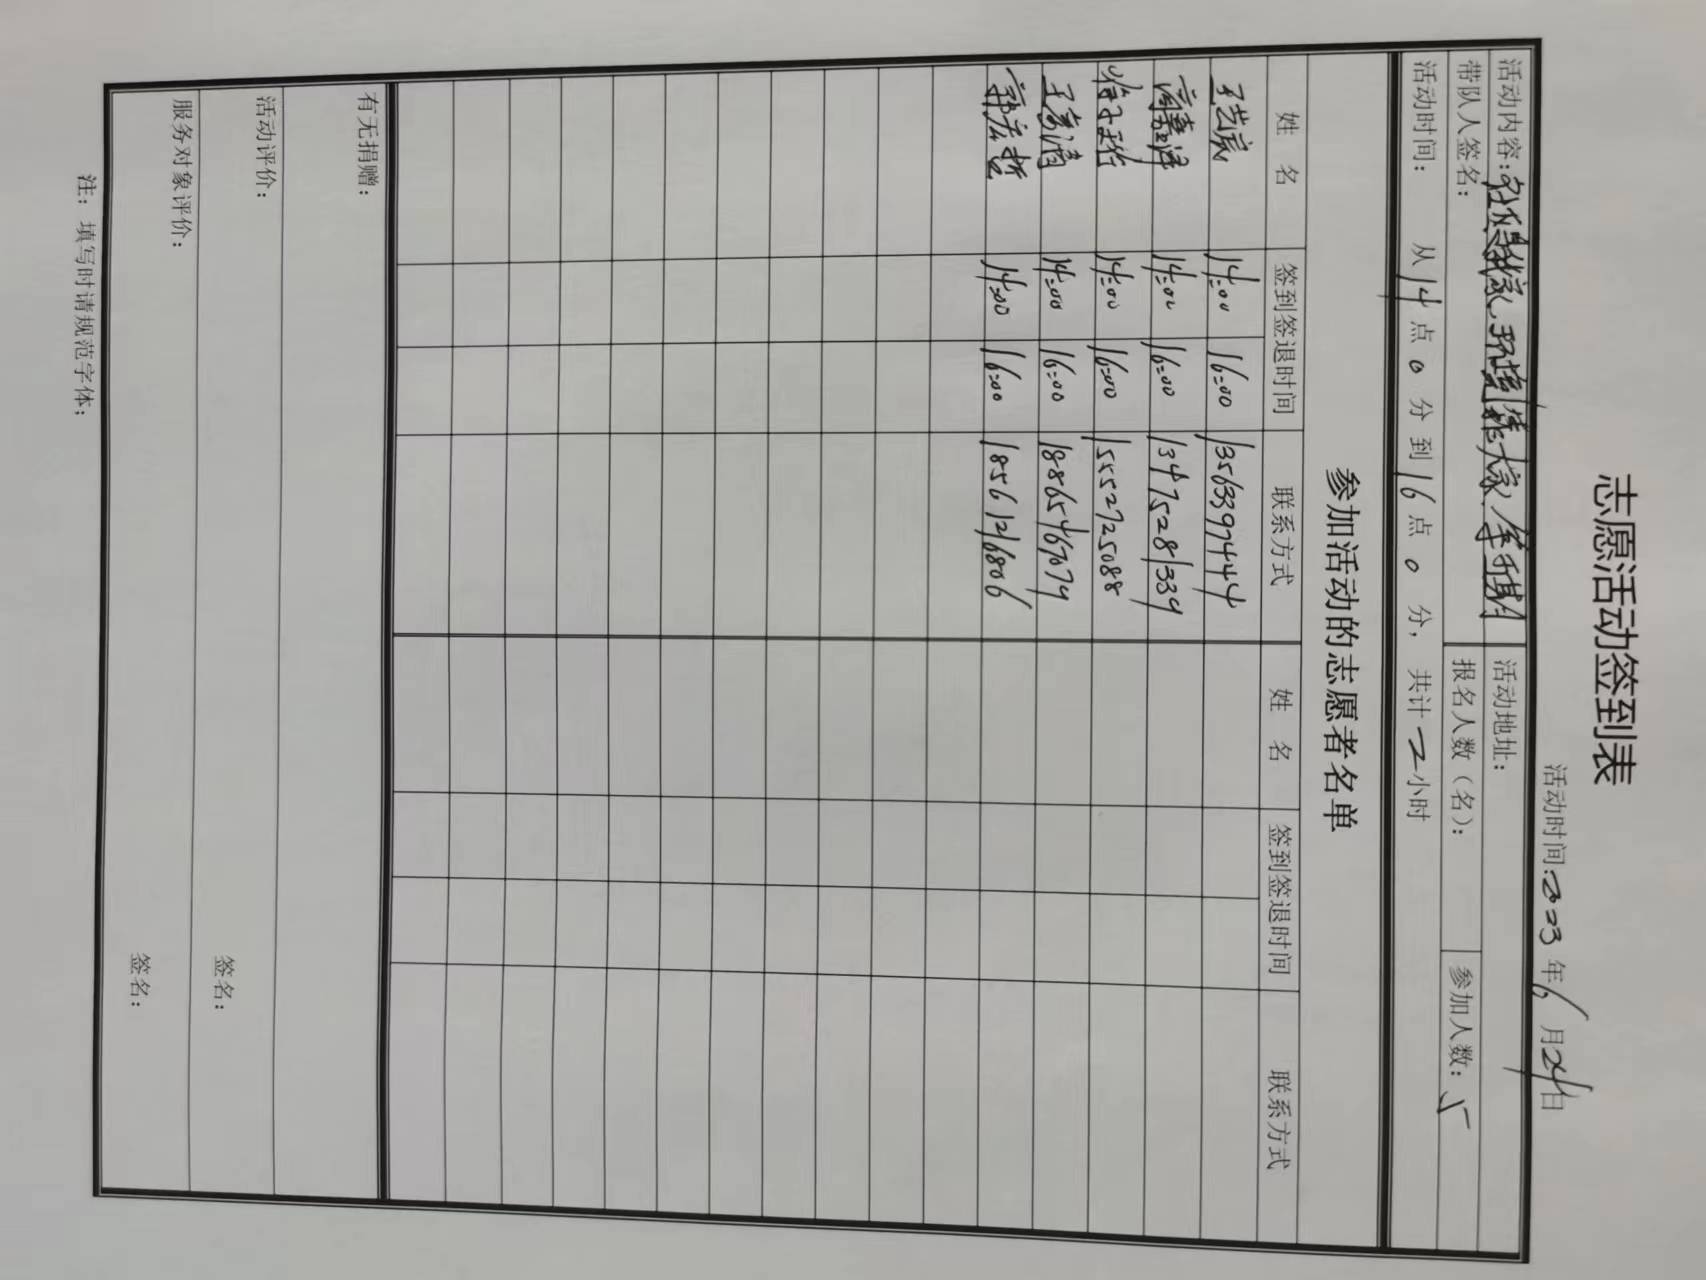 志愿活动签到表
活动时间:2023 年 6 月 24 日
活动内容:社保是我家,环境靠大家
活动地址:
带队人签名:
报名人数(名):
参加人数:5
活动时间: 从 14 点 0 分到 16 点 0 分, 共计 2 小时
参加活动的志愿者名单
姓 名 签到签退时间 联系方式 姓 名 签到签退时间 联系方式
王艺宸 14:00 16:00 13563397444
14:00 16:00 13475281339
徐子珺 14:00 16:00 15552725088
14:00 16:00 18865467074
郭宏哲 14:00 16:00 18561216806
有无捐赠:
活动评价:
签名:
服务对象评价:
签名:
注: 填写时请规范字体;